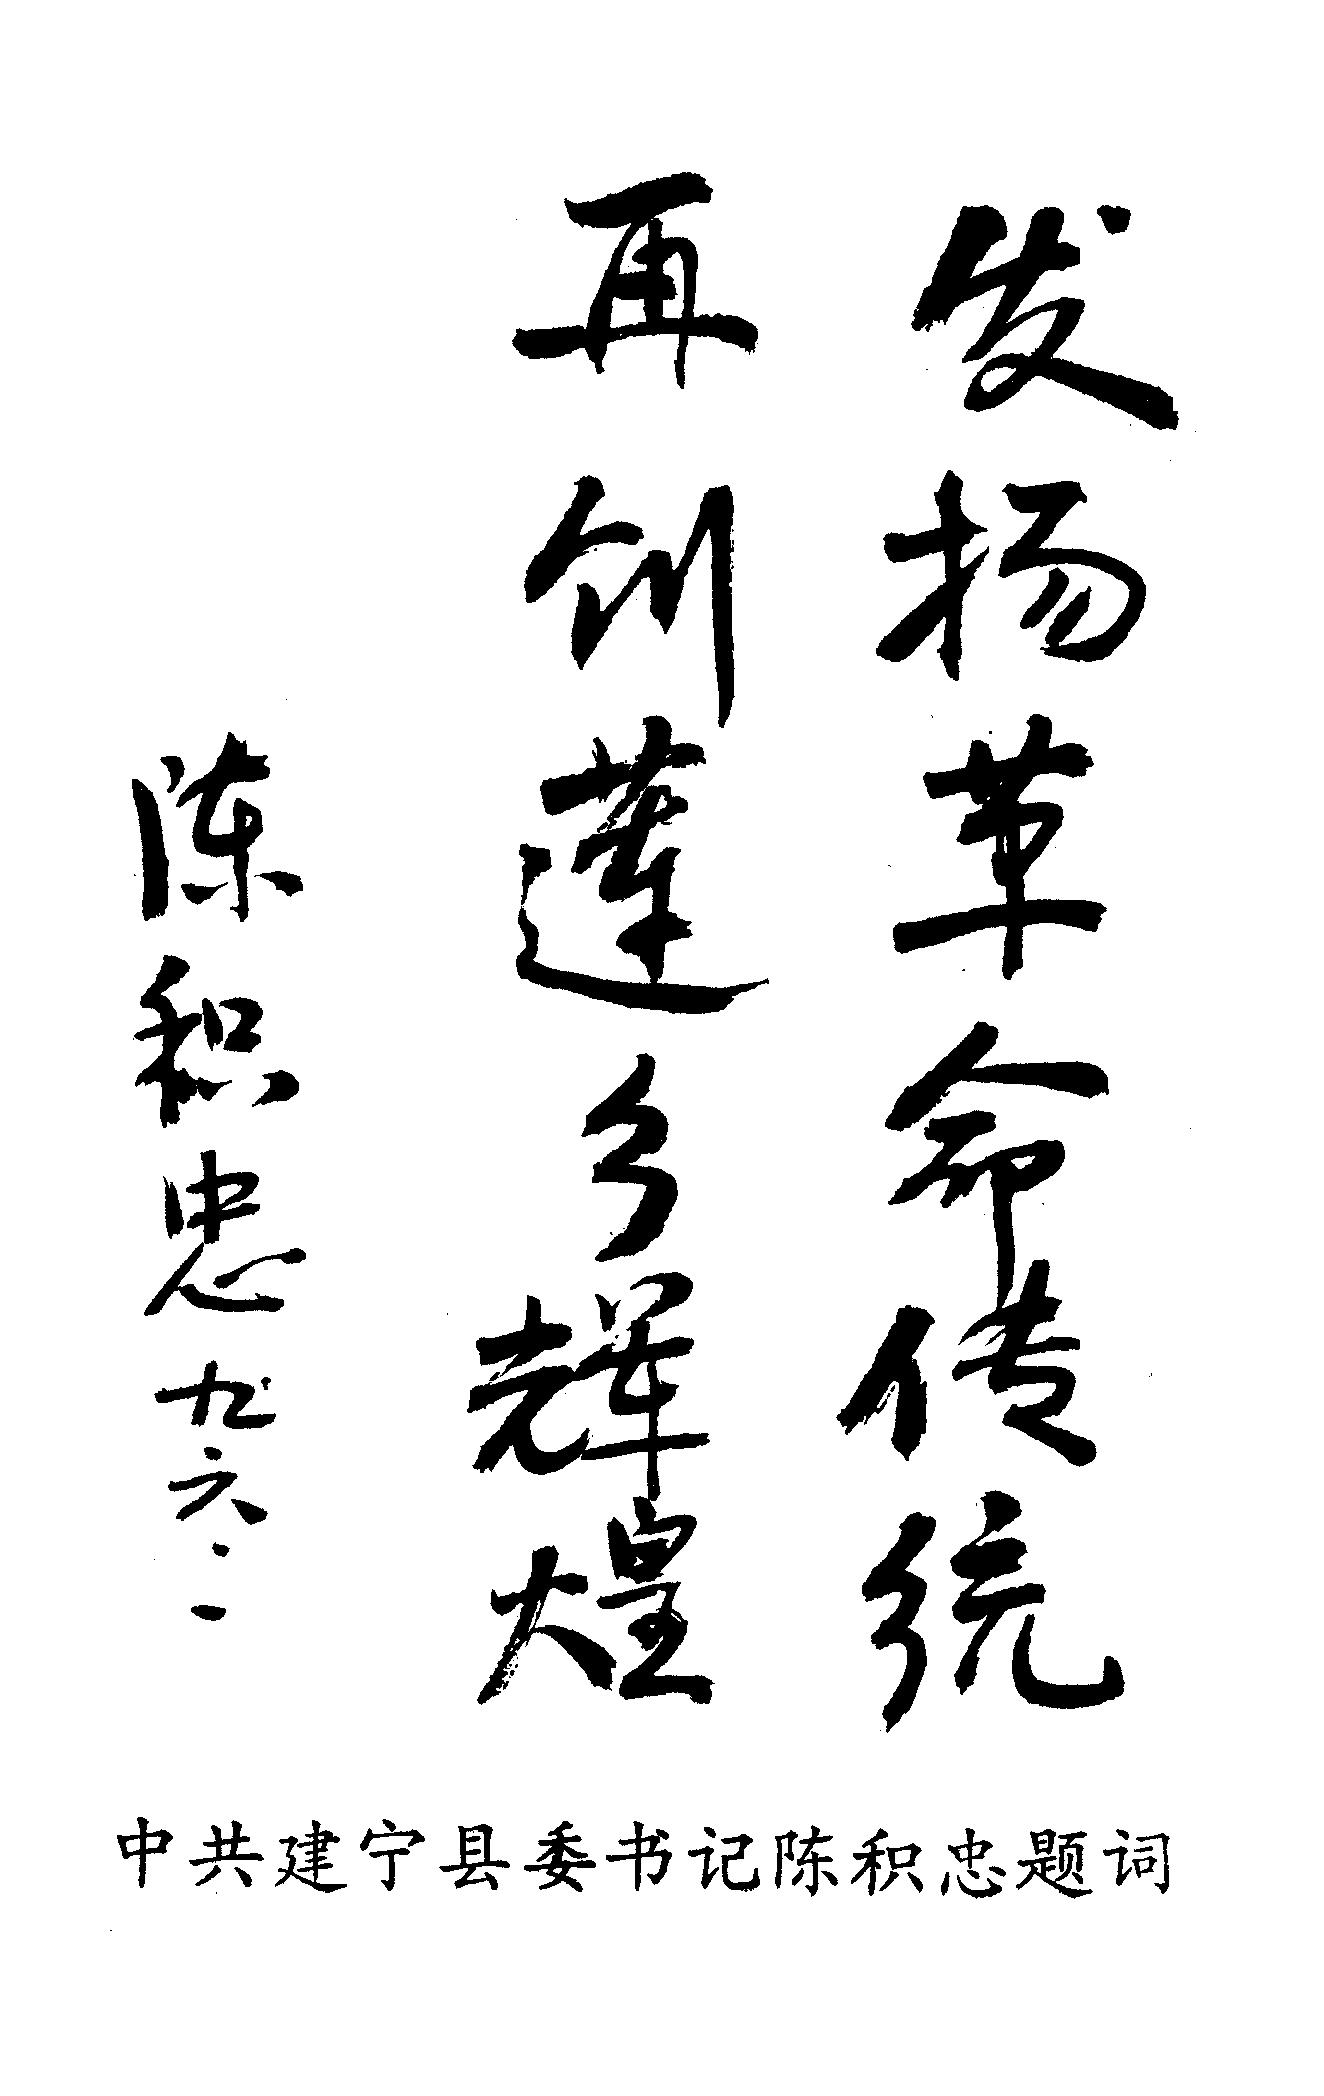 发扬革命传统
再创莲乡辉煌
陈积忠
九六.一
中共建宁县委书记陈积忠题词